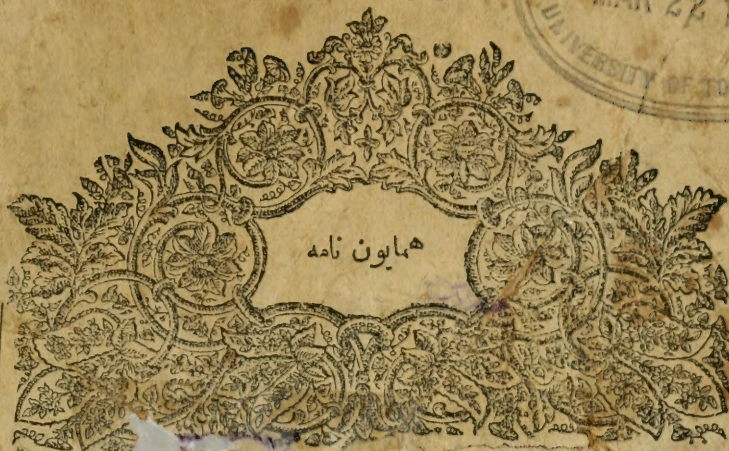 MAR 22
UNIVERSITY OF TO
همایون نامه